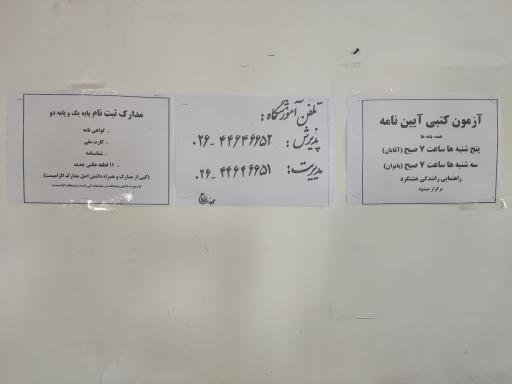 آزمون کتبی آیین نامه
همه پایه ها
پنج شنبه ها ساعت ۷ صبح (آقایان)
سه شنبه ها ساعت ۷ صبح (بانوان)
راهنمایی رانندگی هشتگرد
برگزار میشود
تلفن آموزشگاه:
پذیرش: ۰۲۶-۴۴۶۴۶۶۵۲
مدیریت: ۰۲۶-۴۴۶۴۶۶۵۱
مدارک ثبت نام پایه یک و پایه دو
- گواهی نامه
- کارت ملی
- شناسنامه
- ۱۱ قطعه عکس جدید
(کپی از مدارک و همراه داشتن اصل مدارک الزامیست)